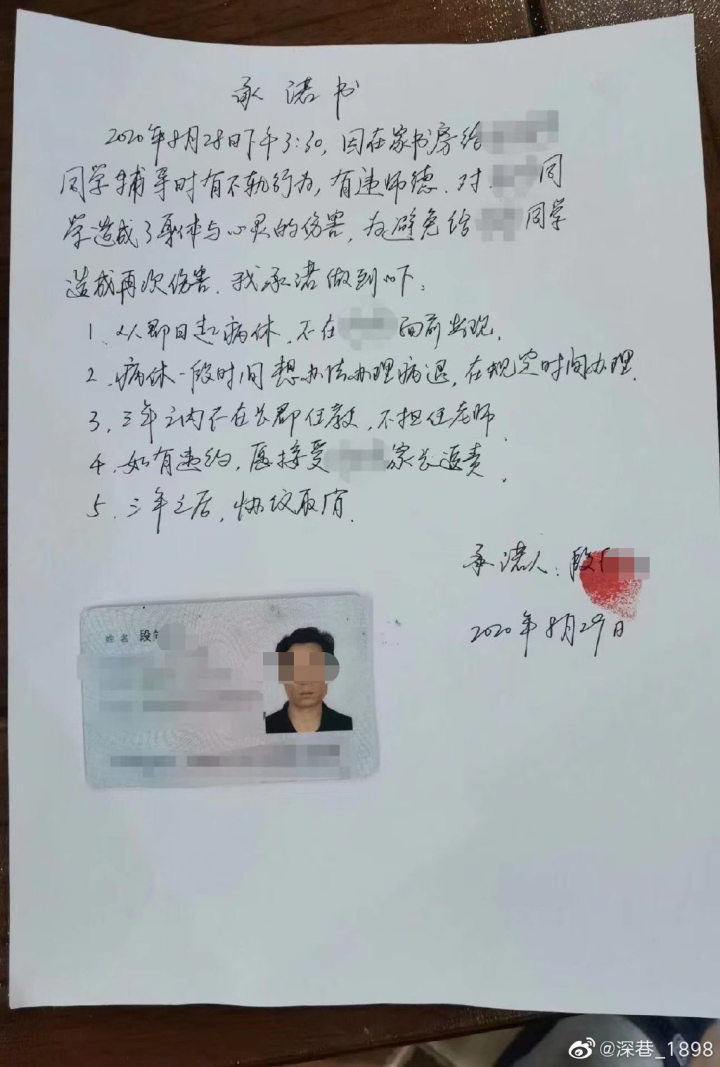 承诺书
2020年8月28日下午3:30,因在家书房给
同学辅导时有不轨行为,有违师德.对 同
学造成了身体与心灵的伤害,为避免给 同学
造成再次伤害.我承诺做到以下:
1、从即日起病休,不在 面前出现.
2、病休一段时间想办法办理病退,在规定时间办理.
3、三年之内不在长郡任教,不担任老师.
4、如有违约,愿接受 家长追责.
5、三年之后,协议取消.
承诺人:段
2020年8月29日
姓名 段
@深巷_1898